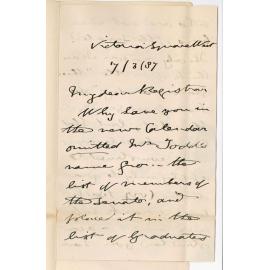 Victoria Square West
7/3/87
My dear Registrar
Why have you in
the new Calendar
omitted Mr Todd's
name from the
list of members of
the Senate, and
placed it in the
list of Graduates